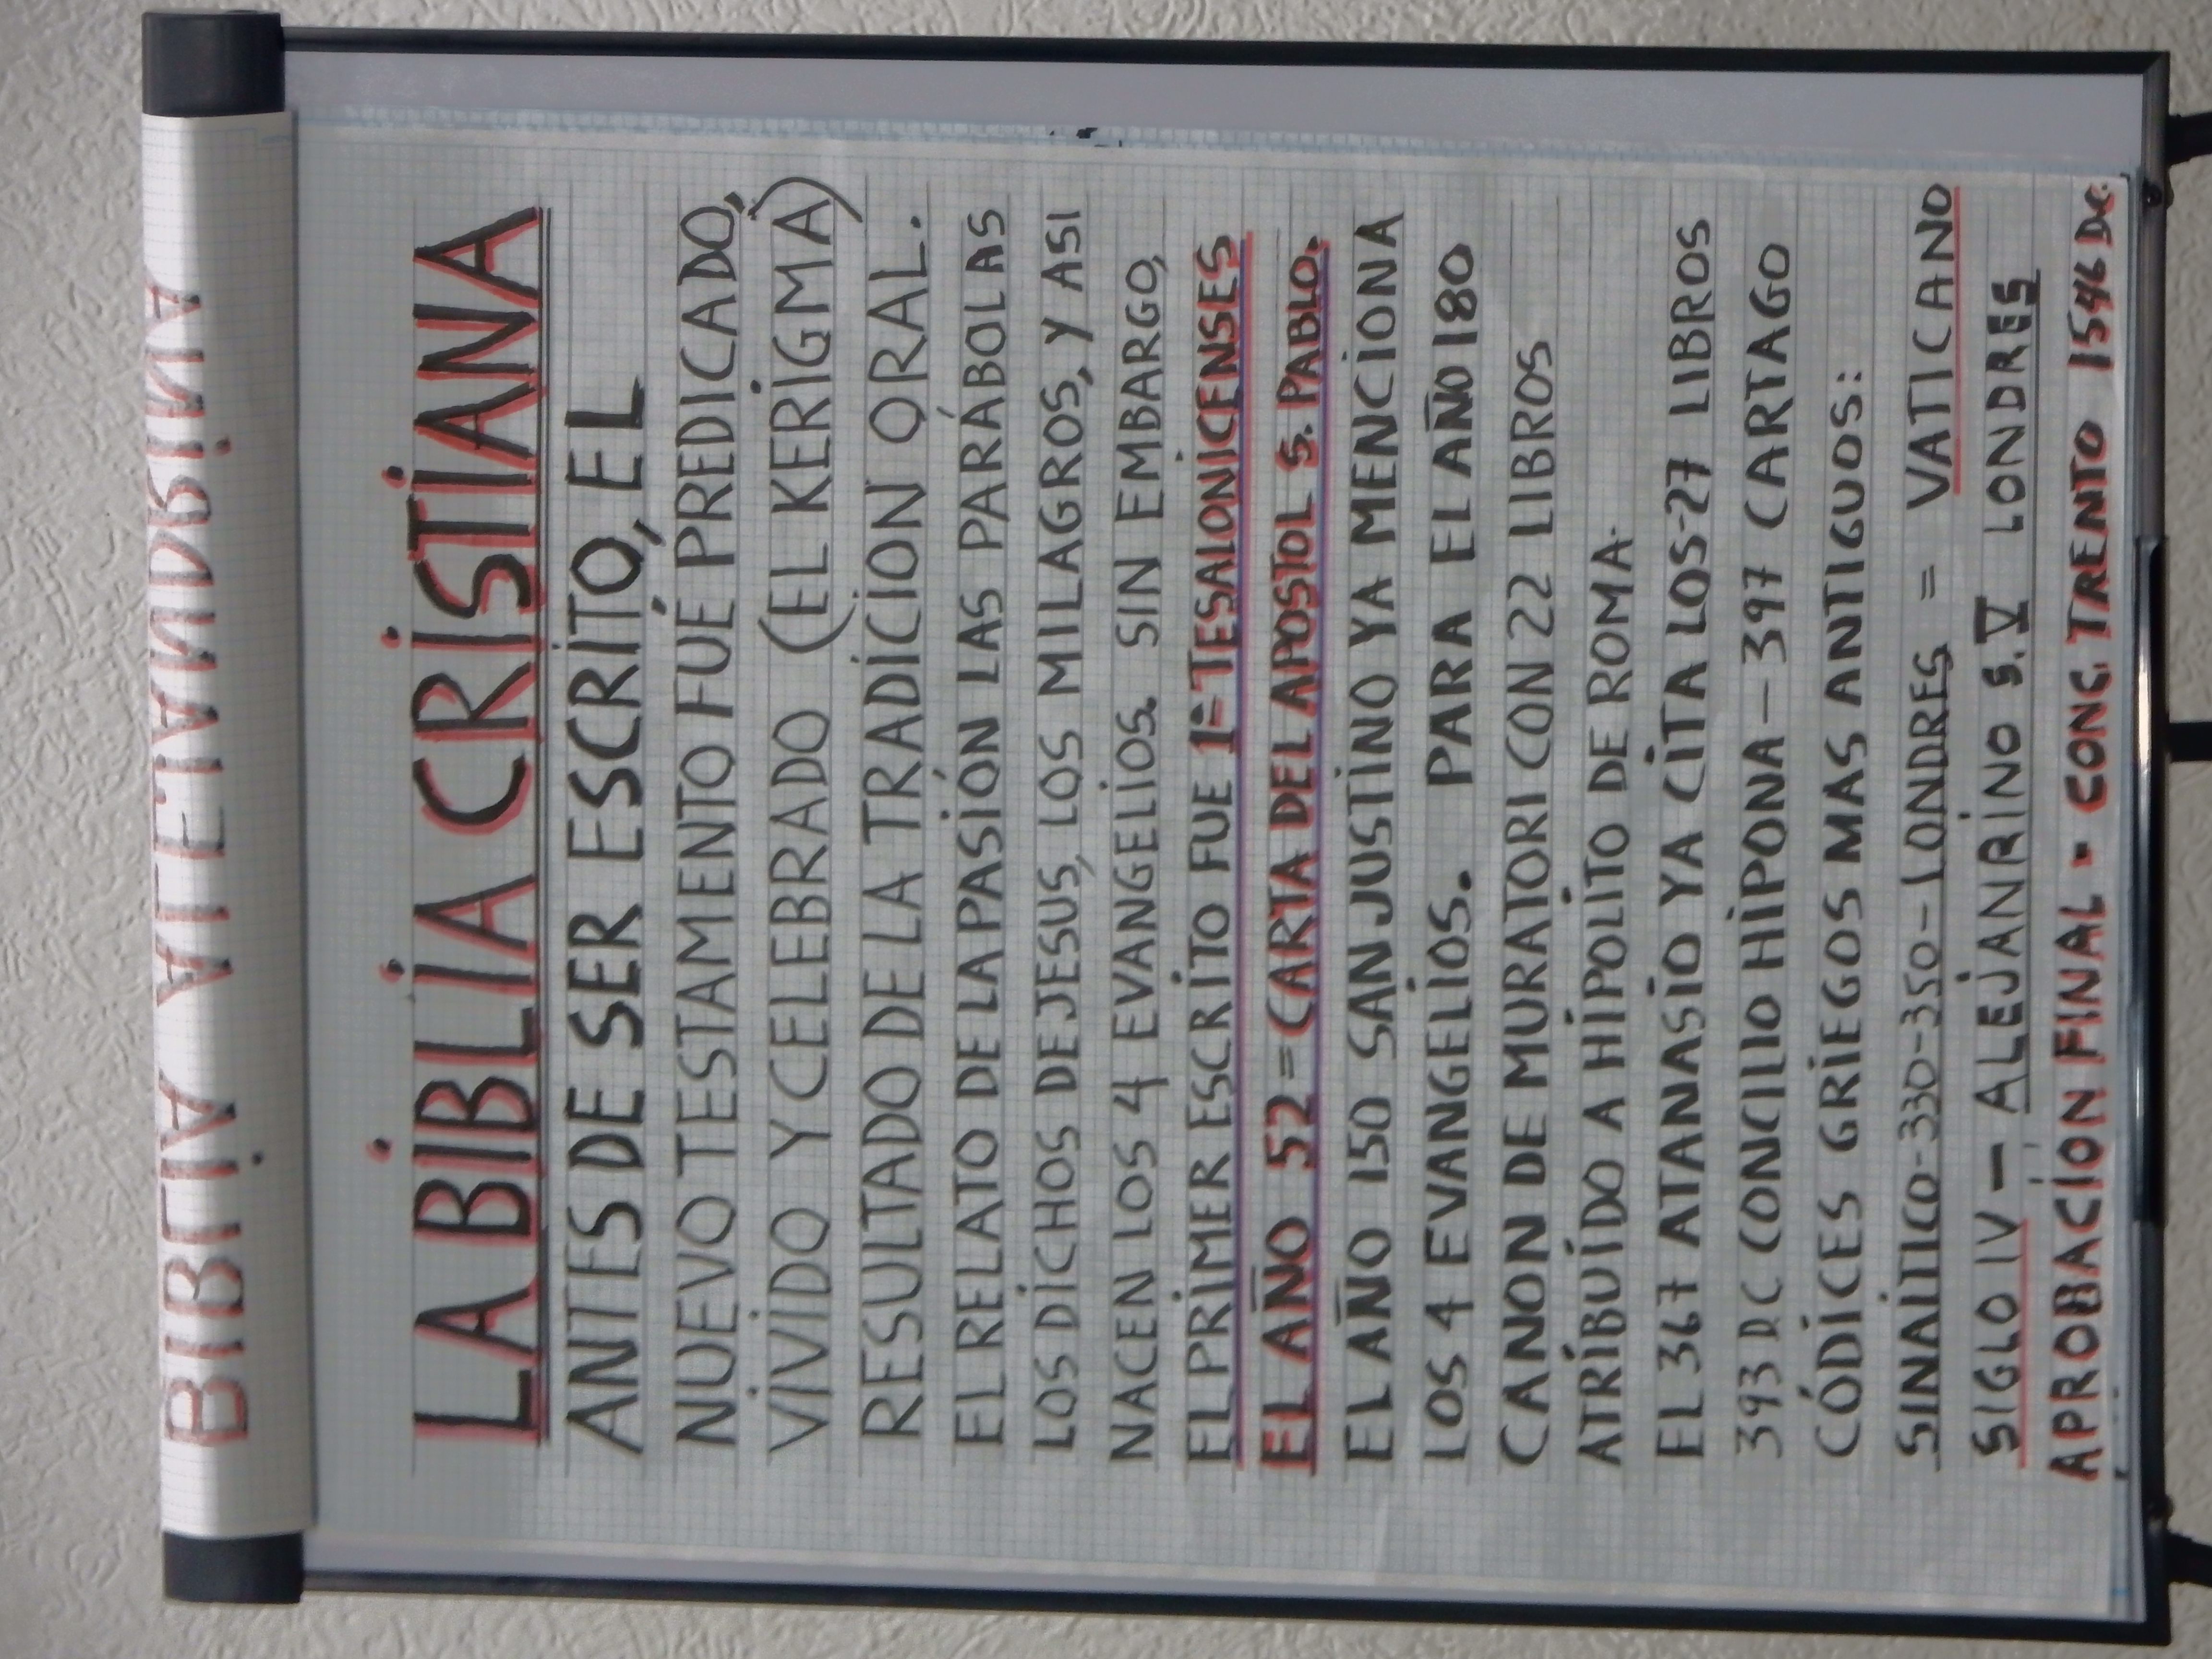 BIBLIA
LA BIBLIA CRISTIANA
ANTES DE SER ESCRITO, EL
NUEVO TESTAMENTO FUÉ PREDICADO,
VIVIDO Y CELEBRADO (EL KERIGMA)
RESULTADO DE LA TRADICION ORAL.
EL RELATO DE LA PASIÓN LAS PARÁBOLAS
LOS DICHOS DE JESUS, LOS MILAGROS, Y ASI
NACEN LOS 4 EVANGELIOS. SIN EMBARGO,
EL PRIMER ESCRITO FUE 1ª TESALONICENSES
EL AÑO 52 = CARTA DEL APOSTOL S. PABLO.
EL AÑO 150 SAN JUSTINO YA MENCIONA
LOS 4 EVANGELIOS. PARA EL AÑO 180
CANON DE MURATORI CON 22 LIBROS
ATRIBUIDO A HIPOLITO DE ROMA.
EL 367 ATANASIO YA CITA LOS-27 LIBROS
393 DC CONCILIO HIPONA - 397 CARTAGO
CÓDICES GRIEGOS MAS ANTIGUOS:
SINAITICO-330-350-LONDRES = VATICANO
SIGLO IV - ALEJANRINO S.V LONDRES
APROBACION FINAL - CONC. TRENTO 1546 DC.